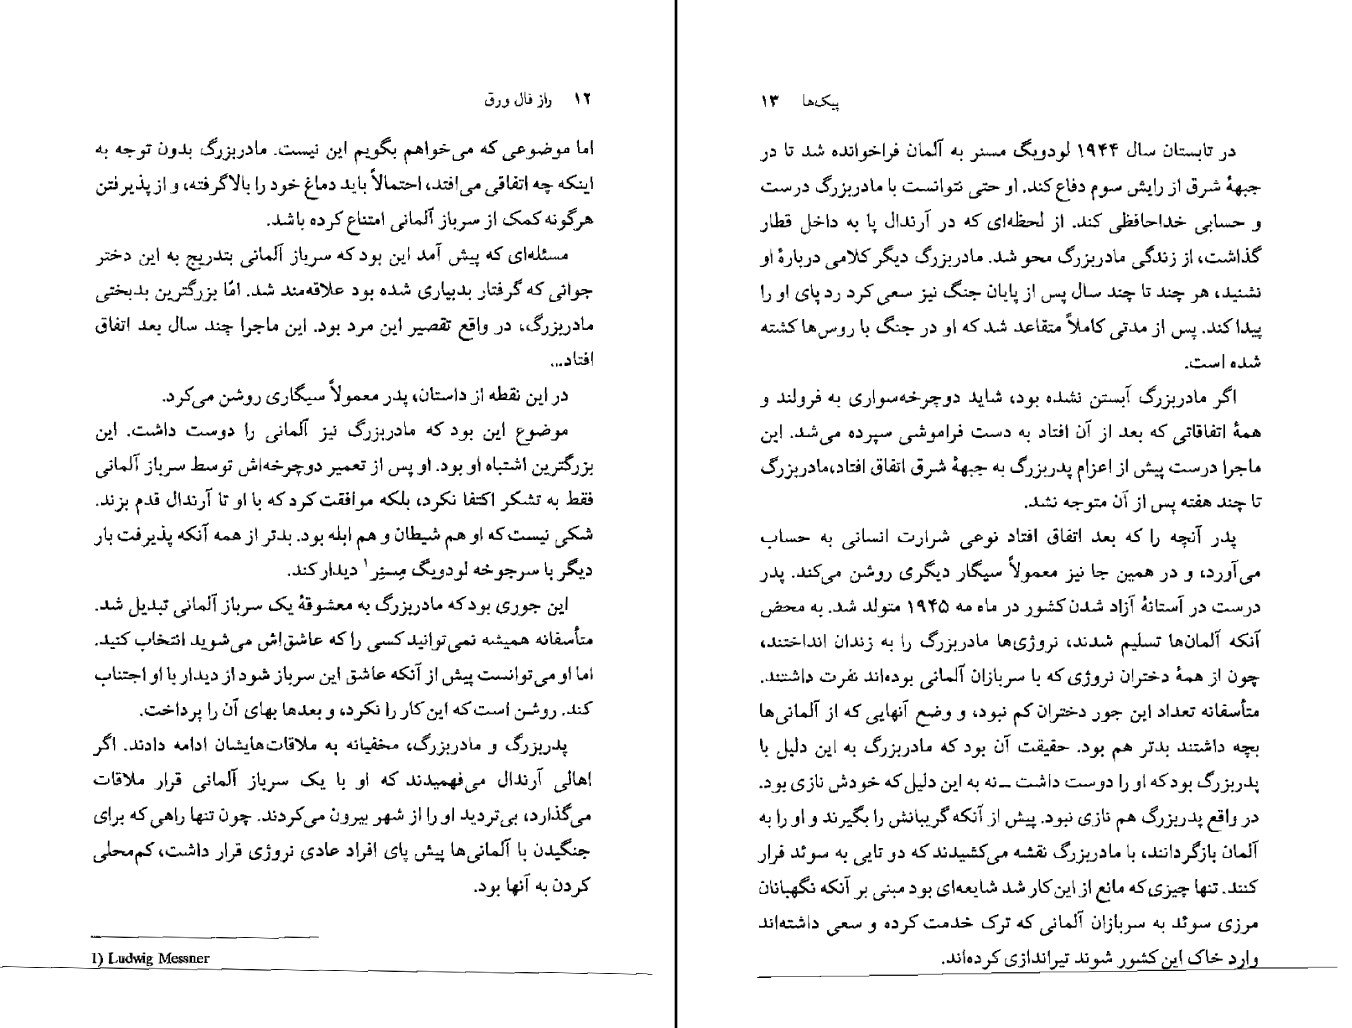 ۱۲ راز فال ورق
اما موضوعی که می‌خواهم بگویم این نیست. مادربزرگ بدون توجه به
اینکه چه اتفاقی می‌افتد، احتمالاً باید دماغ خود را بالاگرفته، و از پذیرفتن
هرگونه کمک از سرباز آلمانی امتناع کرده باشد.
مسئله‌ای که پیش آمد این بود که سرباز آلمانی بتدریج به این دختر
جوانی که گرفتار بدبیاری شده بود علاقه‌مند شد. امّا بزرگترین بدبختی
مادربزرگ، در واقع تقصیر این مرد بود. این ماجرا چند سال بعد اتفاق
افتاد...
در این نقطه از داستان، پدر معمولاً سیگاری روشن می‌کرد.
موضوع این بود که مادربزرگ نیز آلمانی را دوست داشت. این
بزرگترین اشتباه او بود. او پس از تعمیر دوچرخه‌اش توسط سرباز آلمانی
فقط به تشکر اکتفا نکرد، بلکه موافقت کرد که با او تا آرندال قدم بزند.
شکی نیست که او هم شیطان و هم ابله بود. بدتر از همه آنکه پذیرفت بار
دیگر با سرجوخه لودویگ مِسنِر۱ دیدار کند.
این جوری بود که مادربزرگ به معشوقهٔ یک سرباز آلمانی تبدیل شد.
متأسفانه همیشه نمی‌توانید کسی را که عاشق‌اش می‌شوید انتخاب کنید.
اما او می‌توانست پیش از آنکه عاشق این سرباز شود از دیدار با او اجتناب
کند. روشن است که این کار را نکرد، و بعدها بهای آن را پرداخت.
پدربزرگ و مادربزرگ، مخفیانه به ملاقات‌هایشان ادامه دادند. اگر
اهالی آرندال می‌فهمیدند که او با یک سرباز آلمانی قرار ملاقات
می‌گذارد، بی‌تردید او را از شهر بیرون می‌کردند. چون تنها راهی که برای
جنگیدن با آلمانی‌ها پیش پای افراد عادی نروژی قرار داشت، کم‌محلی
کردن به آنها بود.
1) Ludwig Messner
پیک‌ها ۱۳
در تابستان سال ۱۹۴۴ لودویگ مسنر به آلمان فراخوانده شد تا در
جبههٔ شرق از رایش سوم دفاع کند. او حتی نتوانست با مادربزرگ درست
و حسابی خداحافظی کند. از لحظه‌ای که در آرندال پا به داخل قطار
گذاشت، از زندگی مادربزرگ محو شد. مادربزرگ دیگر کلامی دربارهٔ او
نشنید، هر چند تا چند سال پس از پایان جنگ نیز سعی کرد رد پای او را
پیدا کند. پس از مدتی کاملاً متقاعد شد که او در جنگ با روس‌ها کشته
شده است.
اگر مادربزرگ آبستن نشده بود، شاید دوچرخه‌سواری به فرولند و
همهٔ اتفاقاتی که بعد از آن افتاد به دست فراموشی سپرده می‌شد. این
ماجرا درست پیش از اعزام پدربزرگ به جبههٔ شرق اتفاق افتاد،مادربزرگ
تا چند هفته پس از آن متوجه نشد.
پدر آنچه را که بعد اتفاق افتاد نوعی شرارت انسانی به حساب
می‌آورد، و در همین جا نیز معمولاً سیگار دیگری روشن می‌کند. پدر
درست در آستانهٔ آزاد شدن کشور در ماه مه ۱۹۴۵ متولد شد. به محض
آنکه آلمان‌ها تسلیم شدند، نروژی‌ها مادربزرگ را به زندان انداختند،
چون از همهٔ دختران نروژی که با سربازان آلمانی بوده‌اند نفرت داشتند.
متأسفانه تعداد این جور دختران کم نبود، و وضع آنهایی که از آلمانی‌ها
بچه داشتند بدتر هم بود. حقیقت آن بود که مادربزرگ به این دلیل با
پدربزرگ بود که او را دوست داشت ــ نه به این دلیل که خودش نازی بود.
در واقع پدربزرگ هم نازی نبود. پیش از آنکه گریبانش را بگیرند و او را به
آلمان بازگردانند، با مادربزرگ نقشه می‌کشیدند که دو تایی به سوئد فرار
کنند. تنها چیزی که مانع از این کار شد شایعه‌ای بود مبنی بر آنکه نگهبانان
مرزی سوئد به سربازان آلمانی که ترک خدمت کرده و سعی داشته‌اند
وارد خاک این کشور شوند تیراندازی کرده‌اند.